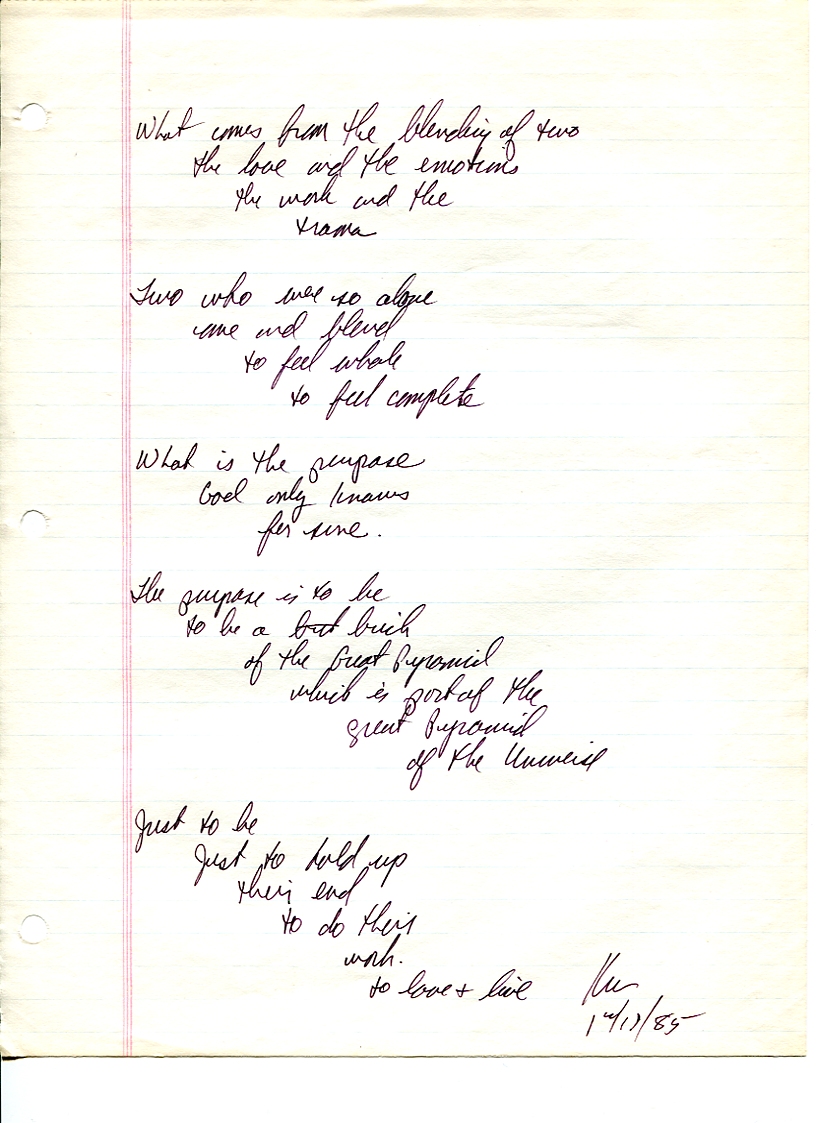 What comes from the blending of two
the love and the emotions
the work and the
trama
Two who were so alone
come and blend
to feel whole
to feel complete
What is the purpose
God only knows
for sure.
The purpose is to be
to be a but brick
of the Great Pyramid
which is part of the
great Pyramid
of the Universe
Just to be
Just to hold up
their end
to do their
work.
to love + live